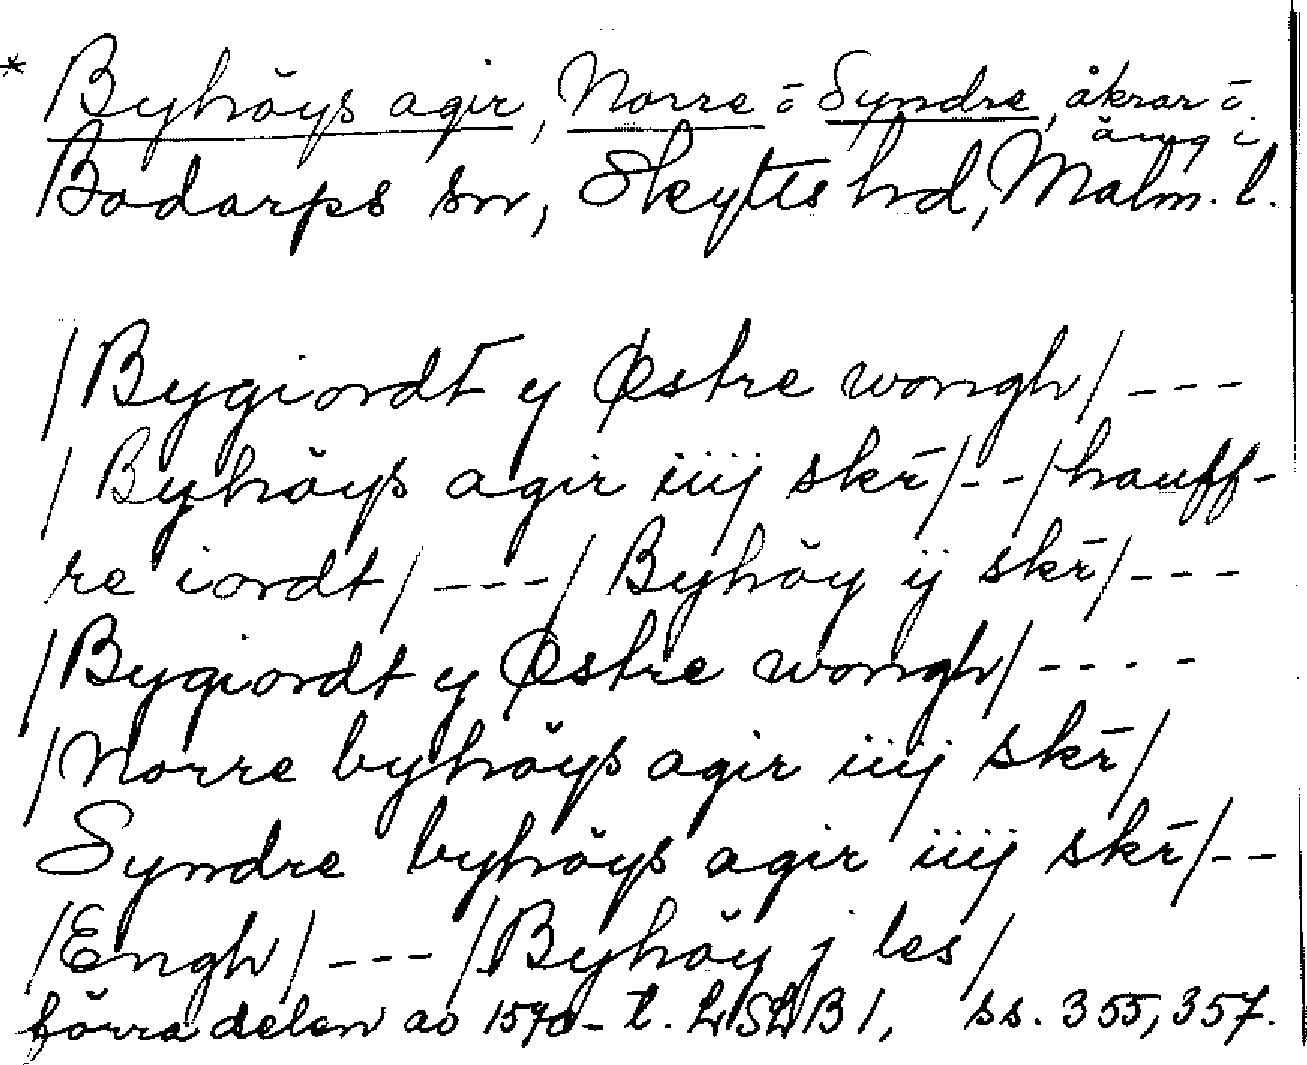 * Byhöys agir, Norre o Syndre, åkrar o.
äng i
Bodarps sn, Skytts hd, Malm. l.
/Bygiordt y Østre wongh/ ---
/Byhöys agir iiij skr̄/--/hauff-
re iordt/ ---/Byhöy ij skr̄/---
/Bygiordt y Østre wongh/----
/Norre byhöys agir iiij skr̄/
Syndre byhöys agir iiij skr̄/--
/Engh/ ---/Byhöy j les/
förra delen av 1570-t. LSLB 1, ss. 355, 357.